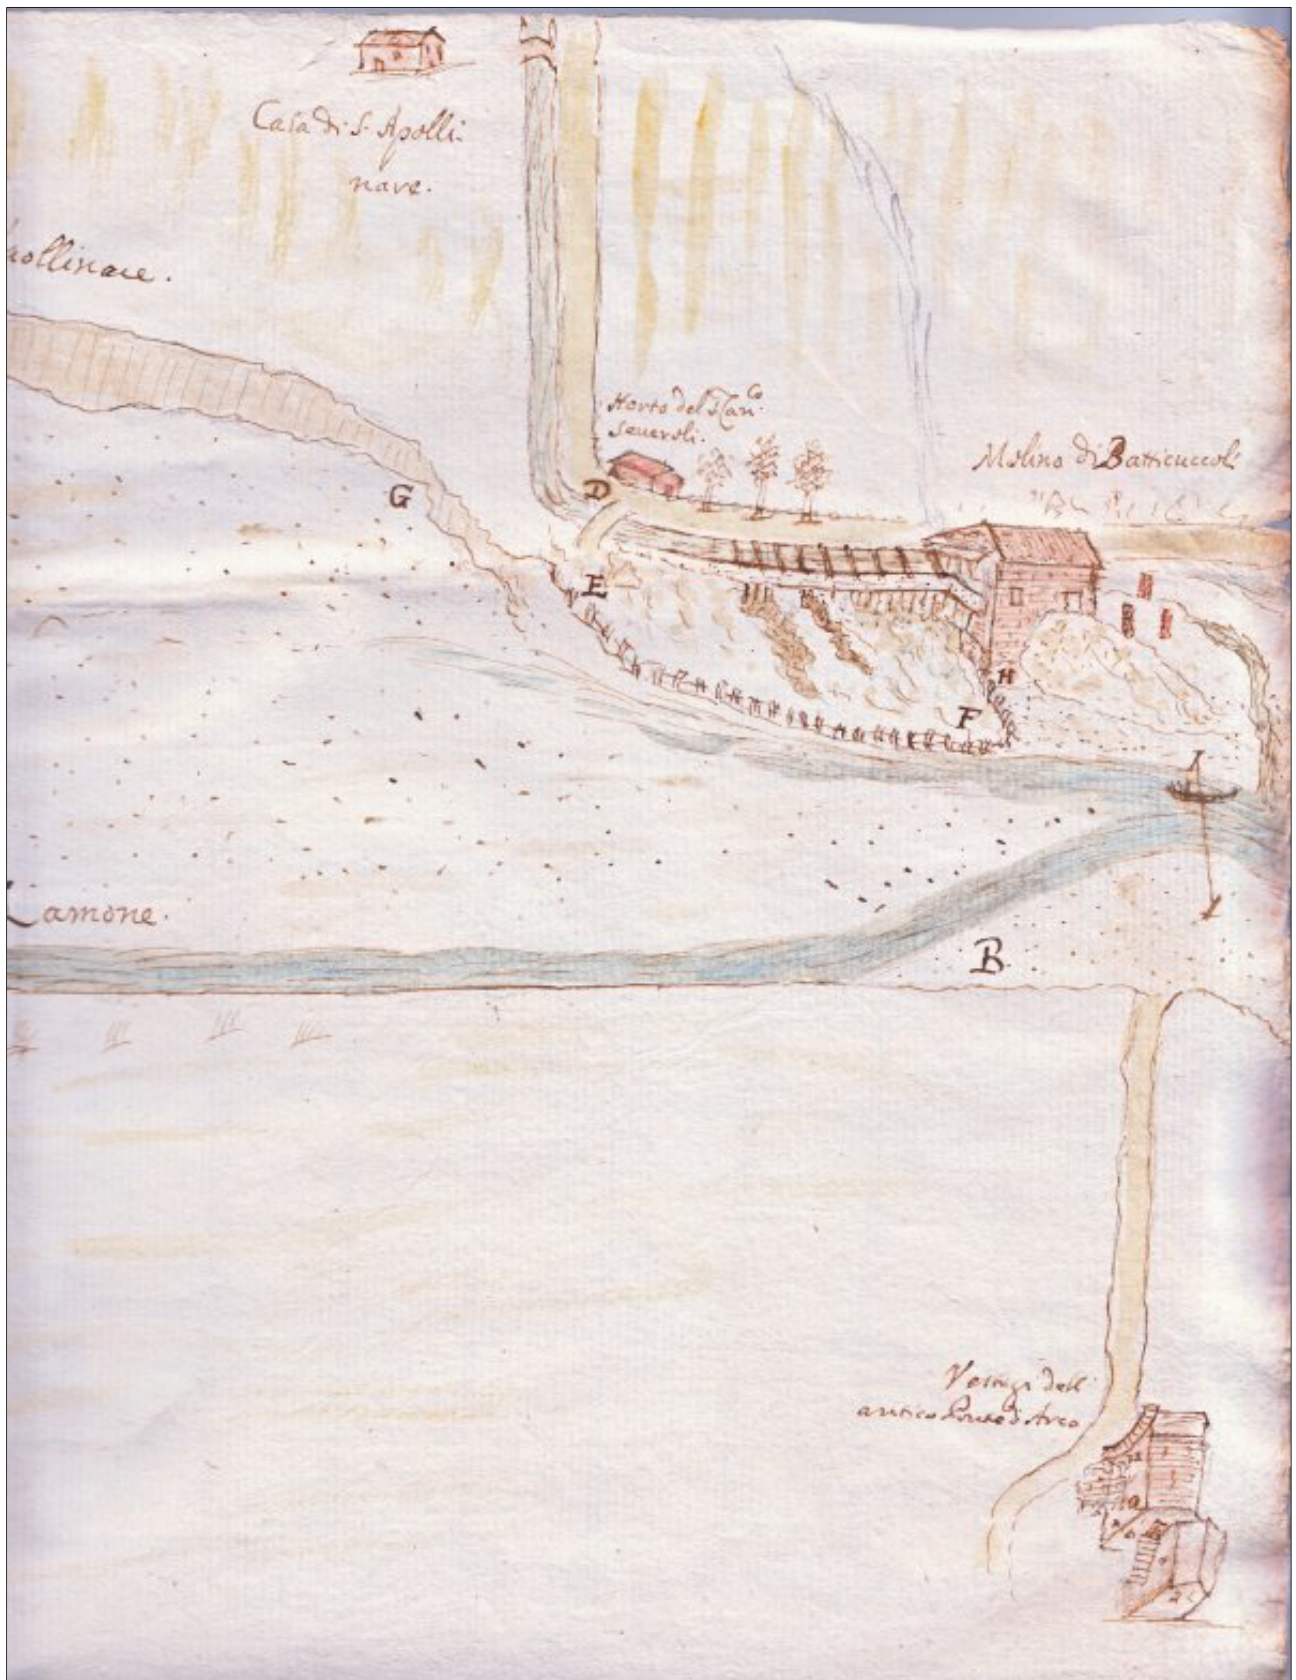 Casa di S. Apolli:
nare.
pollinare.
Horto del S. Can.co
Severoli.
Molino di Batticuccoli
G
D
E
H
F
I
Lamone.
B
Vestigi dell'
antico Ponte d'Arco